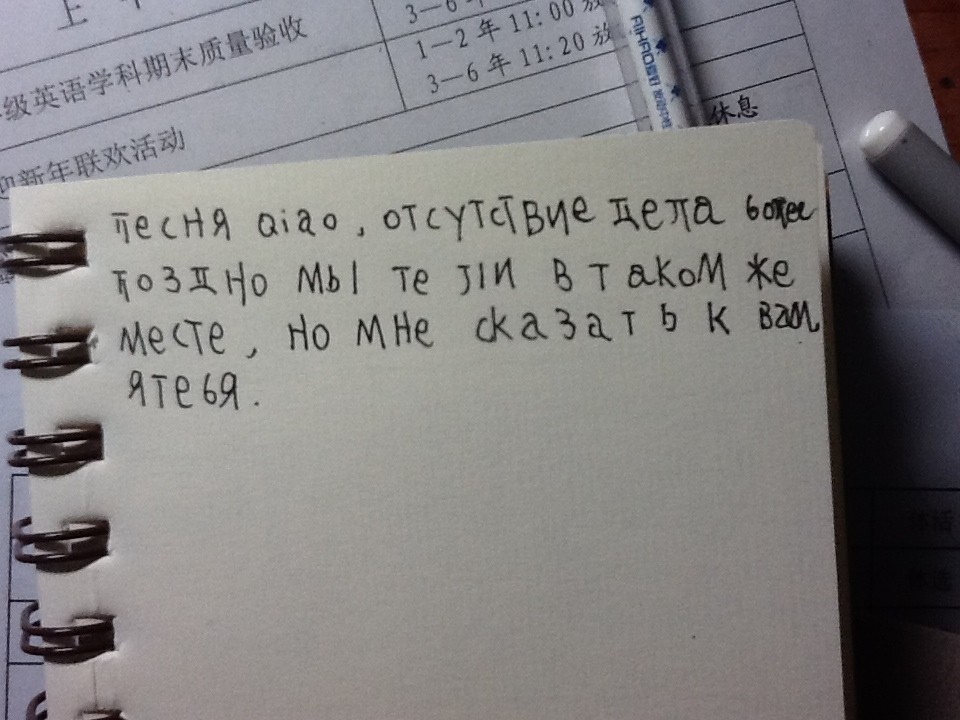 上
3—6年
级英语学科期末质量验收
1—2年 11:00 放
3—6年 11:20 放
迎新年联欢活动
休息
AIHAO爱好
песня qiao, отсутствие дела более
поздно мы те ли в таком же
месте, но мне сказать к вам
я тебя.